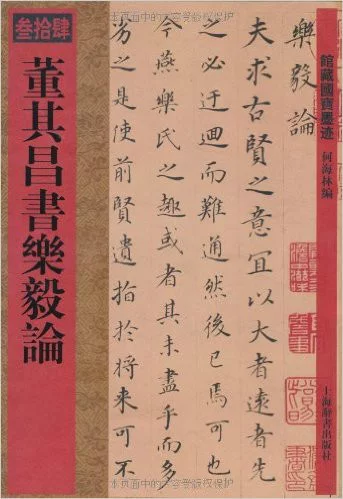 本页面中的内容受版权保护
館藏國寶墨迹
何海林編
上海辭書出版社
樂毅論
夫求古賢之意宜以大者遠者先
之必迂迴而難通然後已焉可也
今燕樂氏之趣或者其未盡乎而多
劣之是使前賢遺指於將來可不
叁拾肆
董其昌書樂毅論
本页面中的内容受版权保护